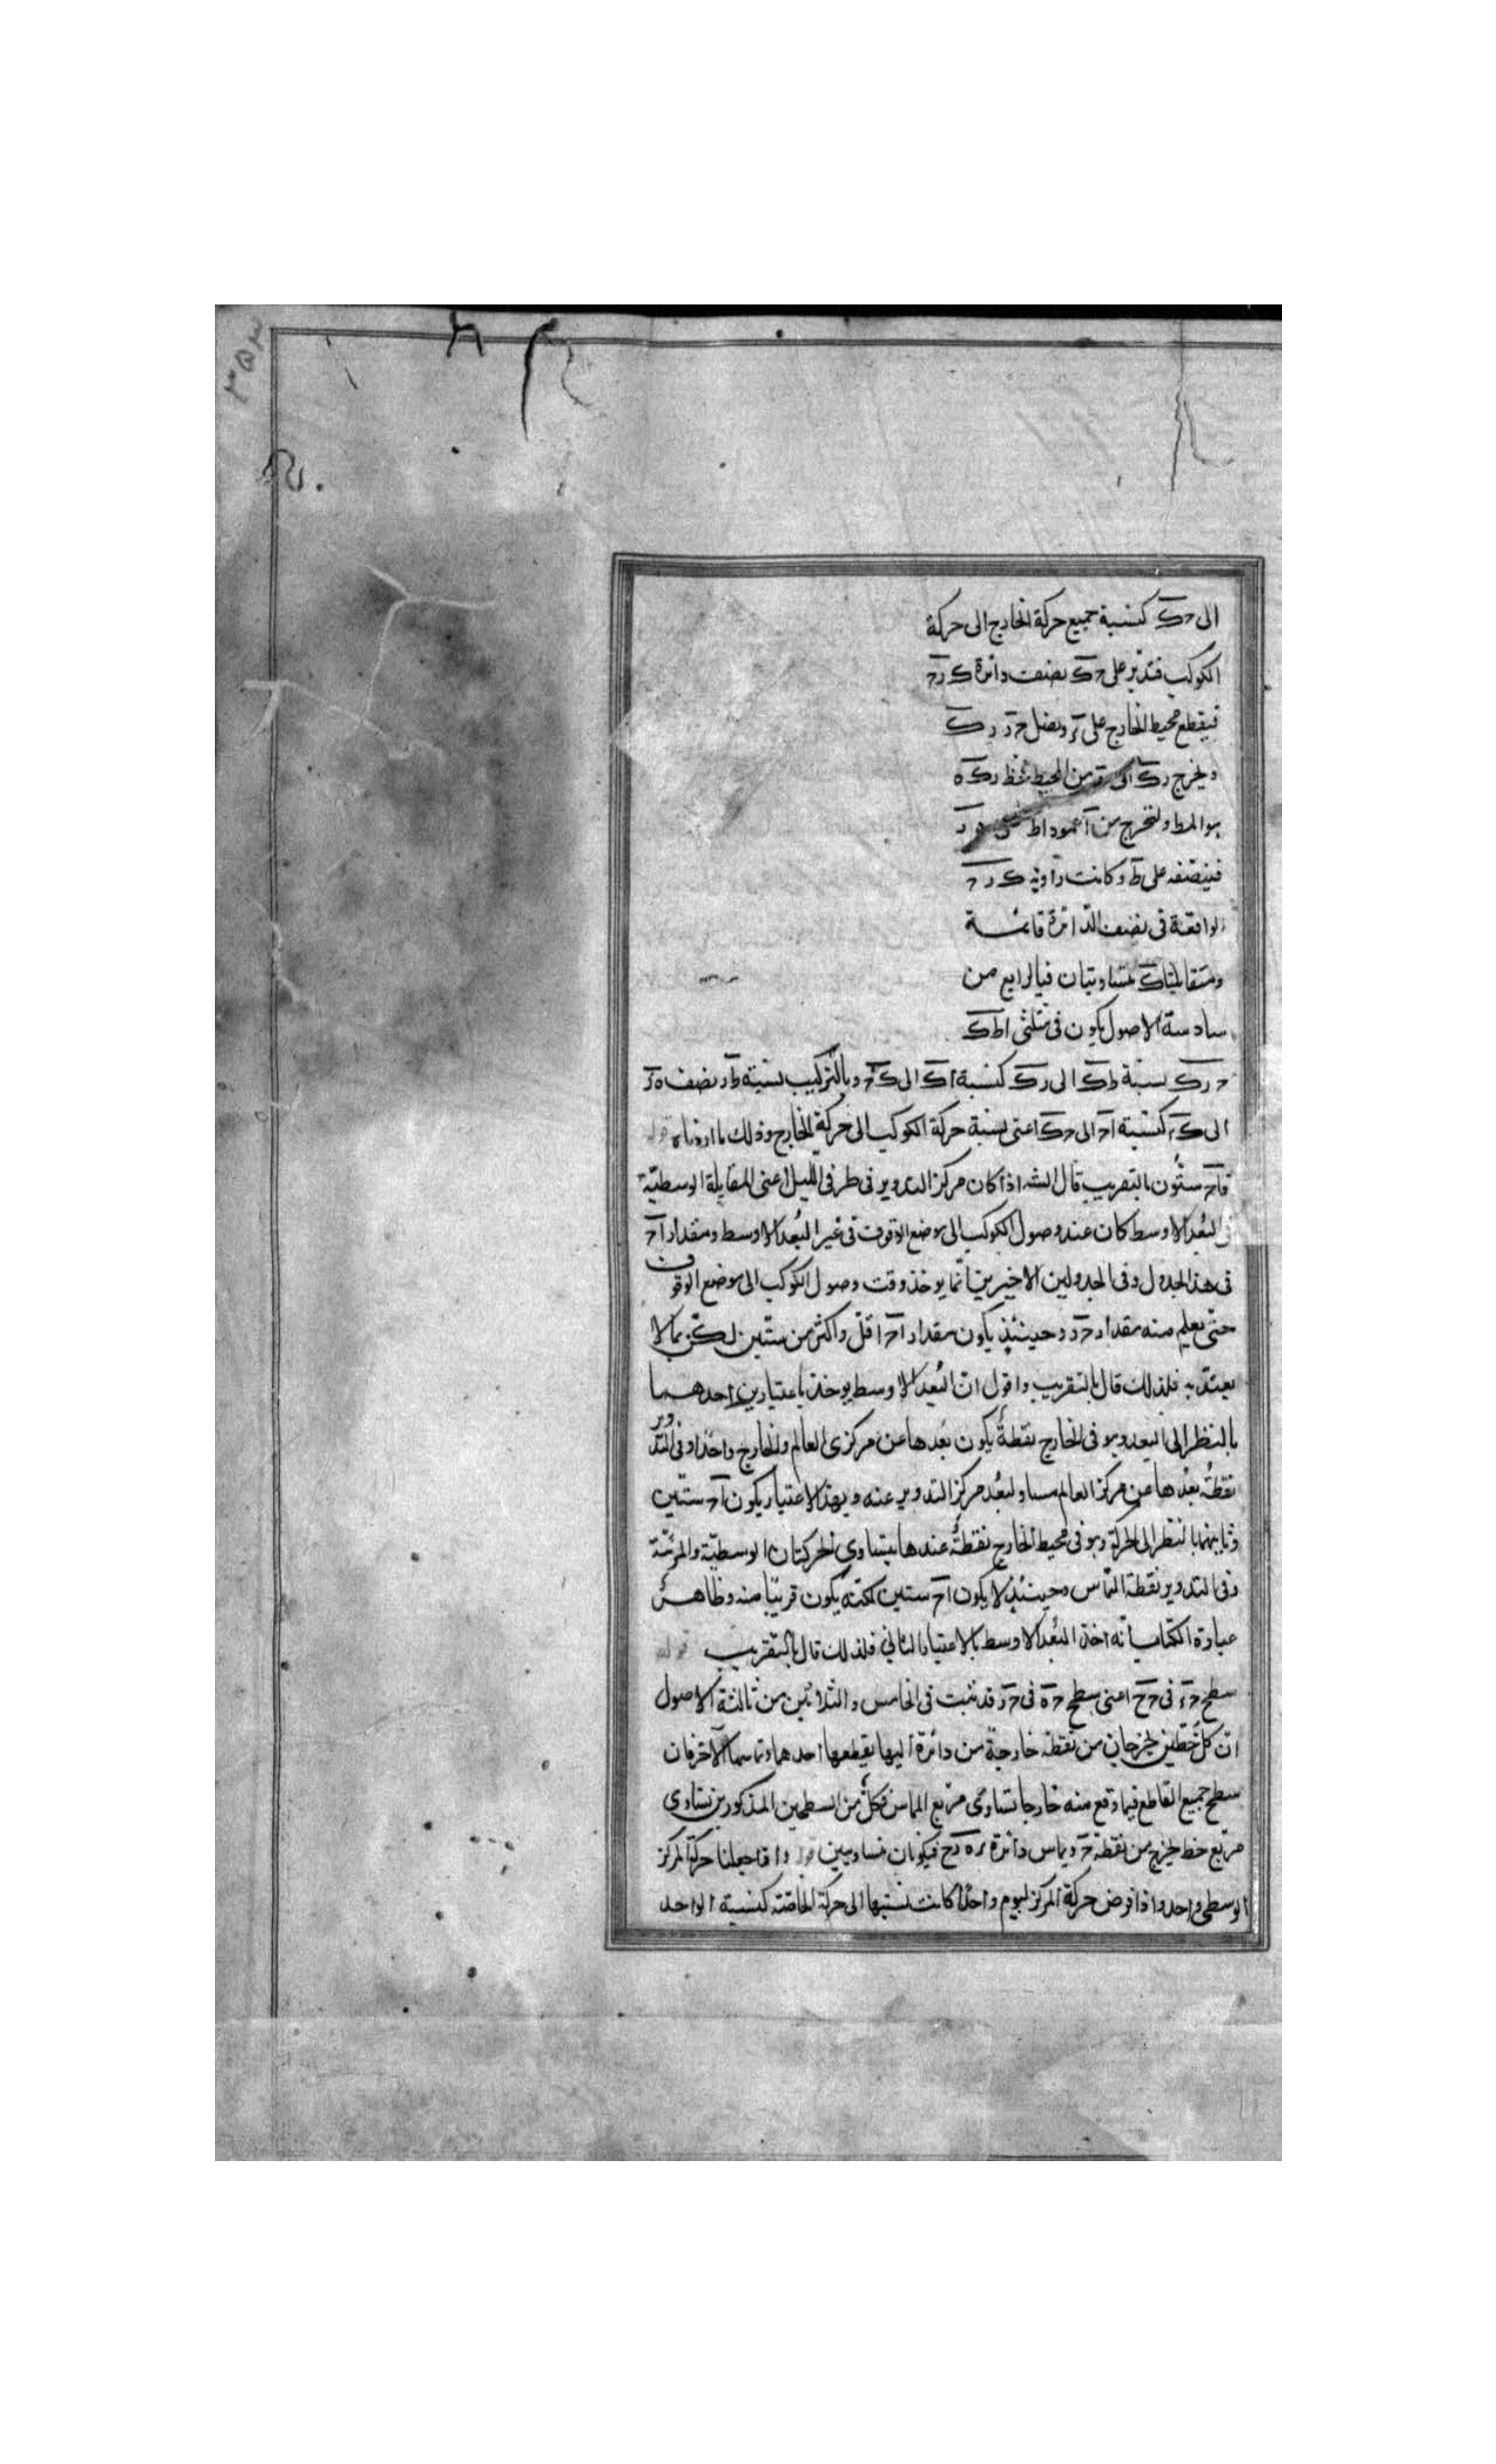 الى حک کنسبة جميع حرکة الخارج الى حرکة
الکوکب فندير على حک نصف دائرة ک ر ح
فيقطع محيط الخارج على ر ونصل ح ر ر ک
ويخرج رک الى ه من المحيط فخط رک ه
هو المط ولنخرج من ا عمود اط على ه ر
فينصفه على ط وکانت زاوية ک ر ح
الواقعة فى نصف الدائرة قائمة
ومتقابلتا ک متساويتان فبالرابع من
سادسة الاصول يکون فى مثلثى اط ک
ح ر ک نسبة ط ک الى ر ک کنسبة ا ک الى ک ح وبالترکيب نسبة ط ر نصف ه ر
الى ک ر کنسبة ا ح الى ح ک اعنى نسبة حرکة الکوکب الى حرکة الخارج وذلک ما اردناه قوله
فا ح ستون بالتقريب قال الشه اذا کان مرکز التدوير فى طرفى الليل اعنى المقابلة الوسطية
فى البعد الاوسط کان عند وصول الکوکب الى موضع الوقوف فى غير البعد الاوسط ومقدار ا ح
فى هذا الجدول وفى الجدولين الاخيرين انما يوخذ وقت وصول الکوکب الى موضع الوقوف
حتى يعلم منه مقدار ح ر وحينئذ يکون مقدار ا ح اقل واکثر من ستين لکن بما لا
يعتد به فلذلک قال بالتقريب واقول ان البعد الاوسط يوخذ باعتبارين احدهما
بالنظر الى البعد وهو فى الخارج نقطة يکون بعدها عن مرکزى العالم والخارج واحدا وفى التدوير
نقطة بعدها عن مرکز العالم مساو لبعد مرکز التدوير عنه وبهذا الاعتبار يکون ا ح ستين
وثانيهما بالنظر الى الحرکة وهو فى محيط الخارج نقطة عندها يتساوى الحرکتان الوسطية والمرئية
وفى التدوير نقطة التماس وحينئذ لا يکون ا ح ستين لکنه يکون قريبا منه وظاهر
عبارة الکتاب انه اخذ البعد الاوسط بالاعتبار الثانى فلذلک قال بالتقريب قوله
سطح ح ء فى ح ح اعنى سطح ح ه فى ح ر قد ثبت فى الخامس والثلاثين من ثالثة الاصول
ان کل خطين يخرجان من نقطة خارجة من دائرة اليها يقطعها احدهما وتماسها الآخر فان
سطح جميع القاطع فيما وقع منه خارجا يساوى مربع المماس فکل من السطحين المذکورين يساوى
مربع خط يخرج من نقطة ح ويماس دائرة ر ه ء ح فيکونان متساويين قوله واذا جعلنا حرکة المرکز
الوسطى واحد واذا فرض حرکة المرکز ليوم واحدا کانت نسبتها الى حرکة الخاصة کنسبة الواحد